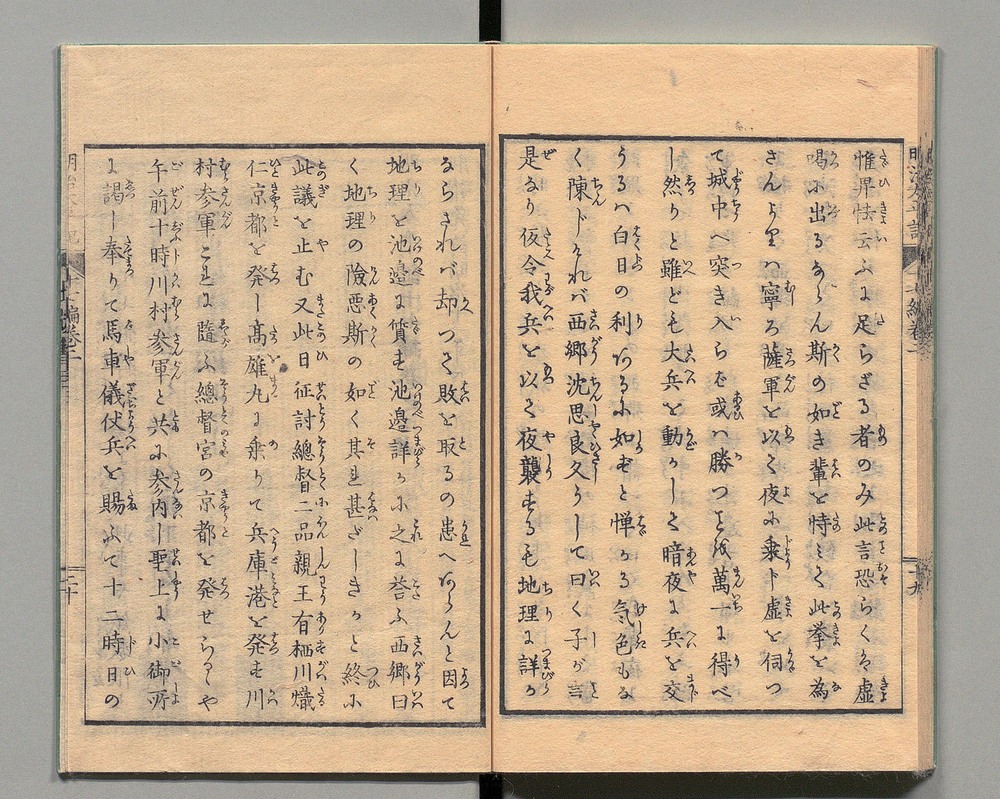 惟昇怯云ふに足らざる者のみ此言恐らくは虚
喝に出るならん斯の如き輩を恃みて此挙を為
さんよりハ寧ろ薩軍を以て夜に乗じ虚を伺つ
て城中へ突き入らば或ハ勝つことを萬一に得べ
し然りと雖ども大兵を動かして暗夜に兵を交
うるハ白日の利あるに如ずと憚かる気色もな
く陳じければ西郷沈思良久うして曰く子が言
是なり仮令我兵を以て夜襲するも地理に詳か
ならざれバ却つて敗を取るの患へあらんと因て
地理を池邉に質す池邉詳かに之に答ふ西郷曰
く地理の険悪斯の如く其れ甚だしきかと終に
此議を止む又此日征討總督二品親王有栖川熾
仁京都を発し高雄丸に乗りて兵庫港を発す川
村参軍これに隨ふ總督宮の京都を発せらるゝや
午前十時川村参軍と共に参内し聖上に小御所
に謁し奉りて馬車儀仗兵を賜ふて十二時日の
十七編巻
二十